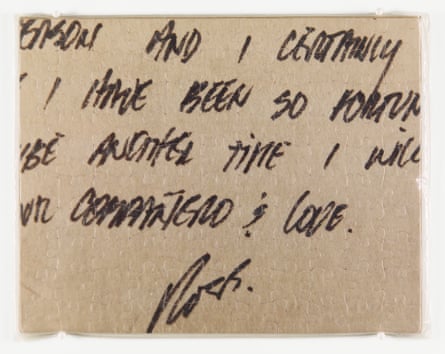 EASON AND I CERTAINLY
I HAVE BEEN SO FORTUN
BE ANOTHER TIME I WILL
UR COMPAÑERO & LOVE.
Ross.